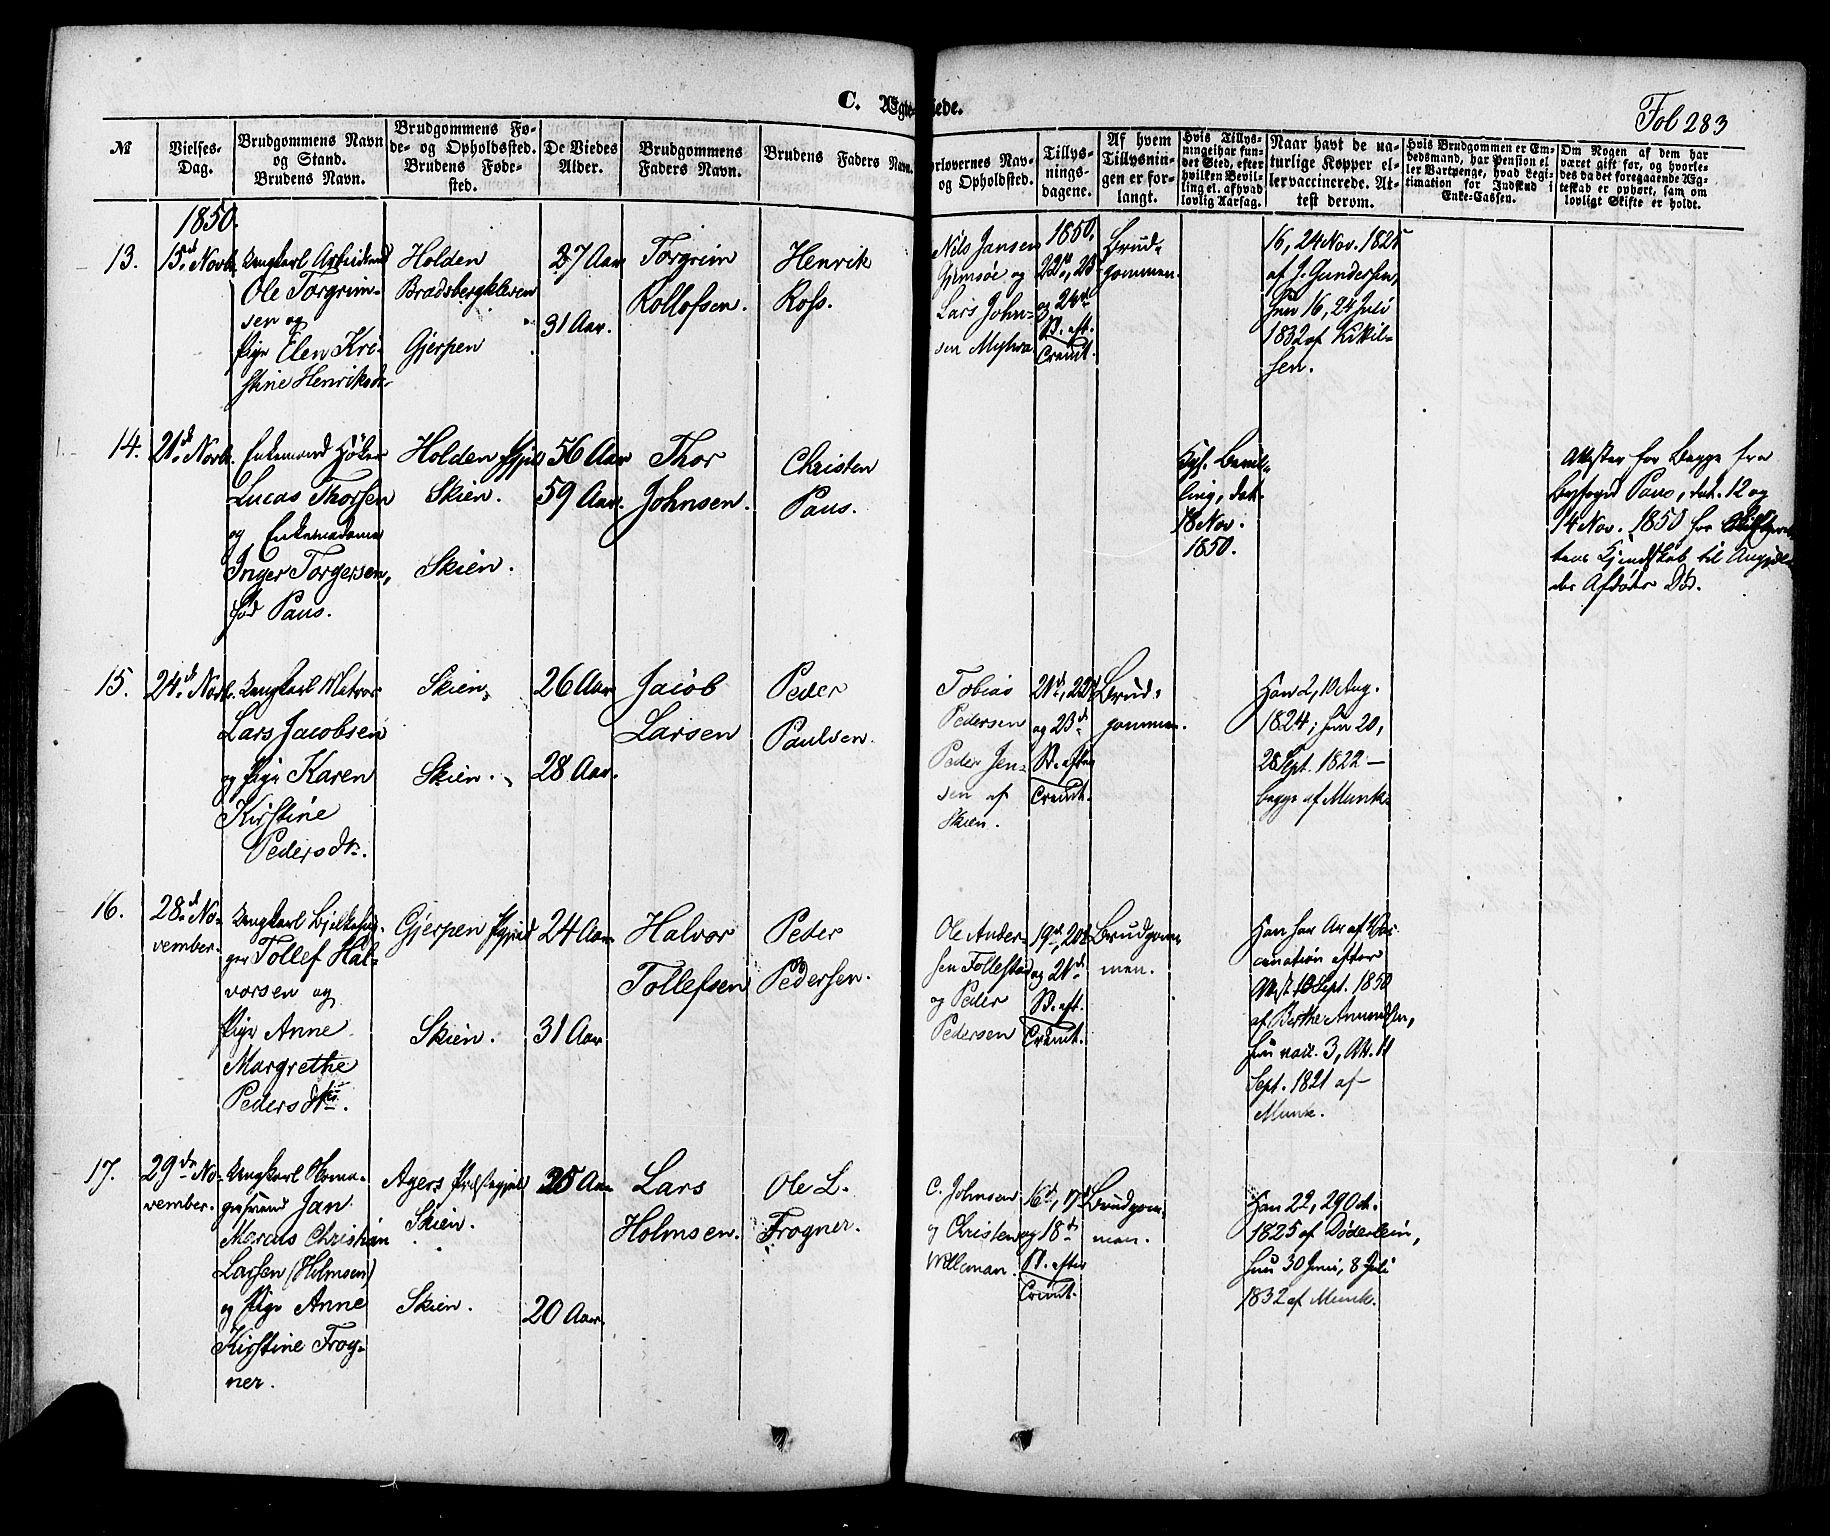 C. Ægteviede.
Fol 283
№
Vielses-
Dag.
Brudgommens Navn
og Stand.
Brudens Navn.
Brudgommens Fø-
de- og Opholdssted.
Brudens Føde-
sted.
De Viedes
Alder.
Brudgommens
Faders Navn.
Brudens Faders Navn.
orlovernes Nav-
og Opholdsted.
Tillys-
nings-
dagene.
Af hvem
Tillysnin-
gen er for-
langt.
Hvis Tillys-
ningei har fun-
det Sted, efter
hvilken Bevil-
ling el. afhvad
lovlig Aarsag.
Naar havt de na-
turlige Kopper el-
ler vaccinerede. At-
test derom.
Hvis Brudgommen er Em-
bedsmand, har Pension el
ler Vartpenge, hvad Legi-
timation for Indskud i
Enke-Cassen.
Om Nogen af dem har
været gift før, og hvorle-
des da det foregaaende Æg-
teskab er ophørt, sam om
lovligt Skifte er holdt.
1850.
13.
15de Novb.
Ungkarl
Ole Torgrim-
sen og
Pige Elen Kri-
stine Henriksdr.
Holden
Bradsbergkleven
Gjerpen
27 Aar
31 Aar.
Torgrim
Rollofsen.
Henrik
Ross.
Nils Jansen
Gjemsøe og
Lars John-
sen Myhra
1850.
22de, 23
og 24de
S. eft.
Trinit.
Brud-
gommen.
16, 24 Nov. 1825
af J. Gundersen,
hun 16, 24 Juli
1832 af Kittil-
sen.
14.
21de Novb.
Enkemand Høker
Lucas Thorsen
og Enkemadame
Inger Torgersen,
fød Paus.
Holden Pgjd
Skien.
Skien.
56 Aar
59 Aar.
Thor
Johnsen.
Christen
Paus.
Kgl. Bevil-
ling, dat.
18 Nov.
1850.
Attester for Begge fra
Byfoged Paus, dat. 12 og
14 Nov. 1850 for Skifteret-
tens Kjendskab til Angjel-
des Afdødes Død.
15.
24de Novb.
Ungkarl Matros
Lars Jacobsen
og Pige Karen
Kirstine
Pedersdr.
Skien,
Skien.
26 Aar
28 Aar.
Jacob
Larsen
Peder
Paulsen.
Tobias
Pedersen
Peder Jen-
sen af
Skien.
21de, 22de
og 23de
S. efter
Trinit.
Brud-
gommen.
Han 2, 10 Aug.
1824; hun 20,
28 Sept. 1822 —
begge af Munk.
16.
28de No-
vember.
Ungkarl
Tollef Hal-
vorsen og
Pige Anne
Margrethe
Pedersdtr.
Gjerpen Pgjeld
Skien.
24 Aar
31 Aar
Halvor
Tollefsen
Peder
Pedersen.
Ole Ander-
sen Follestad
og Peder
Pedersen
19de, 20de
og 21de
S. eft.
Trinit.
Brudgom-
men.
Han har Ar af Vac-
cination efter
Attest 10 Sept. 1850
af Berthe Amundsen,
hun vacc. 3, Att. 11
Sept. 1821 af
Munk.
17.
29de No-
vember.
Ungkarl
Jan
Marcus Christian
Larsen (Holmsen)
og Pige Anne
Kirstine Frog-
ner.
Agers Præstegjeld
Skien.
Skien.
25 Aar
20 Aar.
Lars
Holmsen.
Ole L.
Frogner.
C. Johnsen
og Christen
Willeman.
16de, 17de
og 18de
S. efter
Trinit.
Brudgom-
men.
Han 22, 29 Oct.
1825 af Døderlein,
hun 30 Juni, 8 Juli
1832 af Munk.